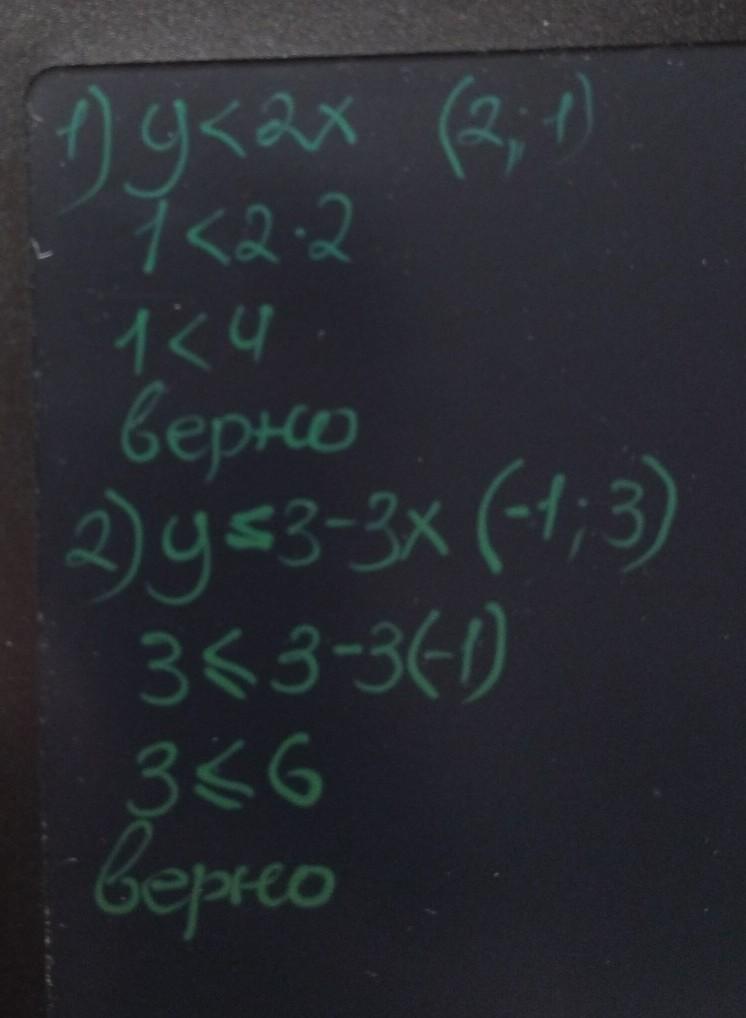 1) y < 2x (2; 1)
1 < 2 · 2
1 < 4
верно
2) y ≤ 3 - 3x (-1; 3)
3 ≤ 3 - 3(-1)
3 ≤ 6
верно